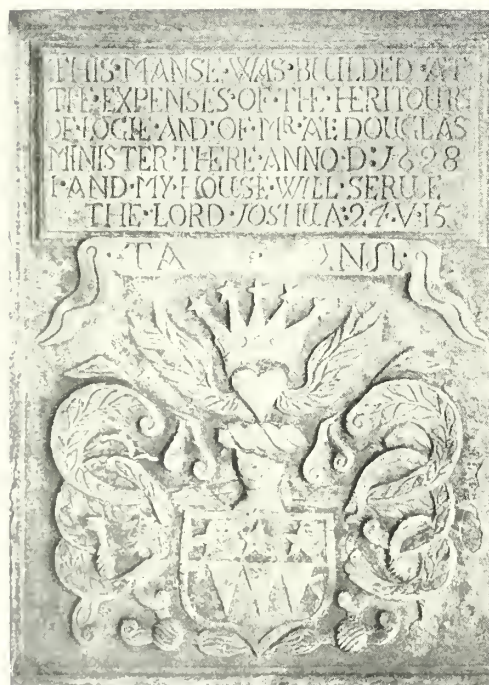 THIS·MANSE·WAS·BUILDED·AT
THE·EXPENSES·OF·THE·HERITOURS
OF·FOGIE·AND·OF·MR·AE·DOUGLAS
MINISTER·THERE·ANNO·D:1698
I·AND·MY·HOUSE·WILL·SERUE
THE·LORD·JOSHUA:24·V·15